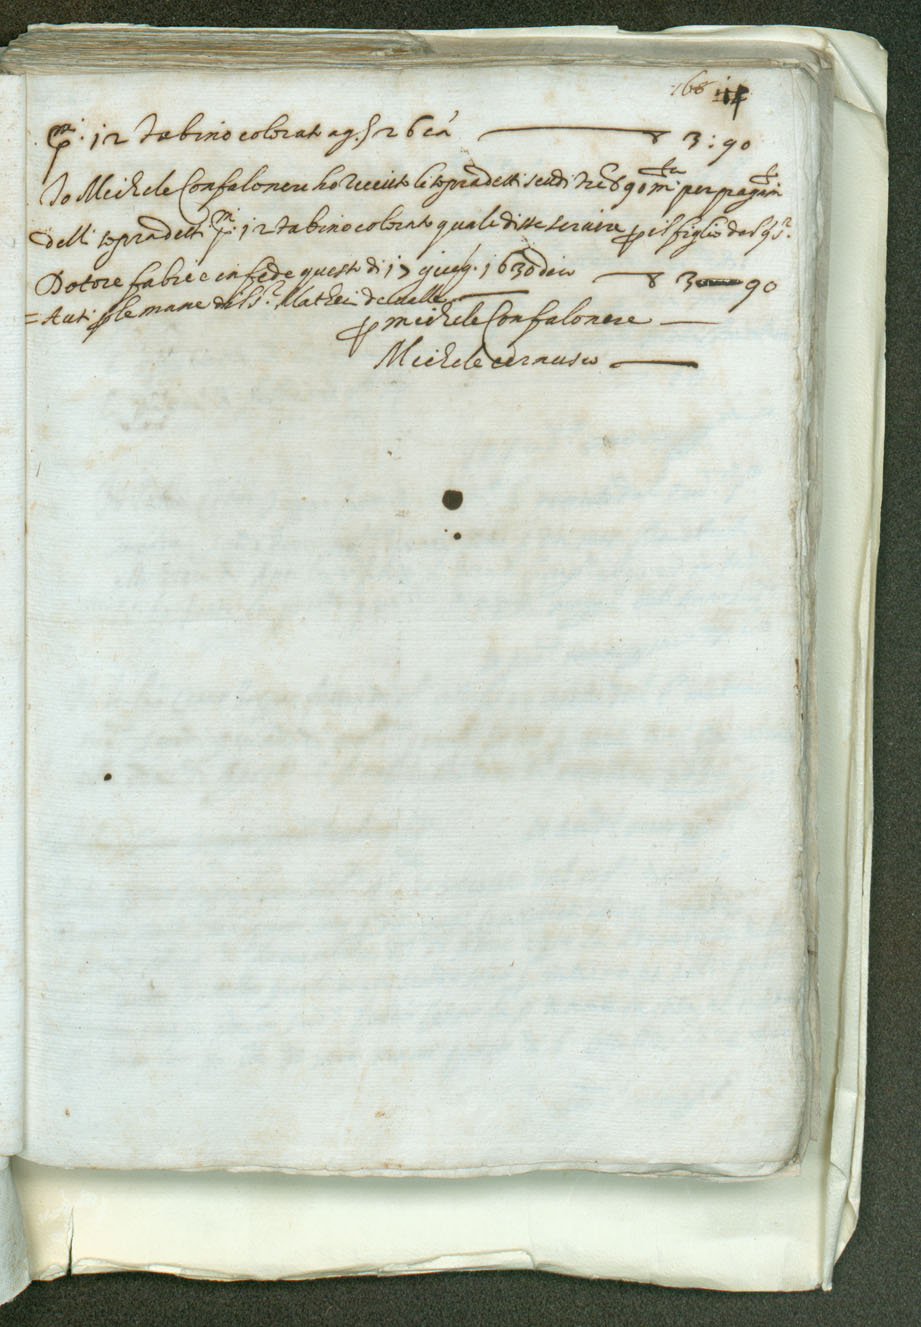 168
p.mi 12 tabino colorato a g. 26 ca —— 3:90
Io Michele Confalonere ho receuto li sopradetti scudi tre 90 mta per pagamto
delli sopradetti p.mi 12 tabino colorato quale disse servire p il figlio del
Dotore Fabrece in fede questo di 17 giug. 1630 dico —— 3 —— 90
= Auti p le mane del Sr. Mathei
p michele Confalonere —
Michele cernusco —